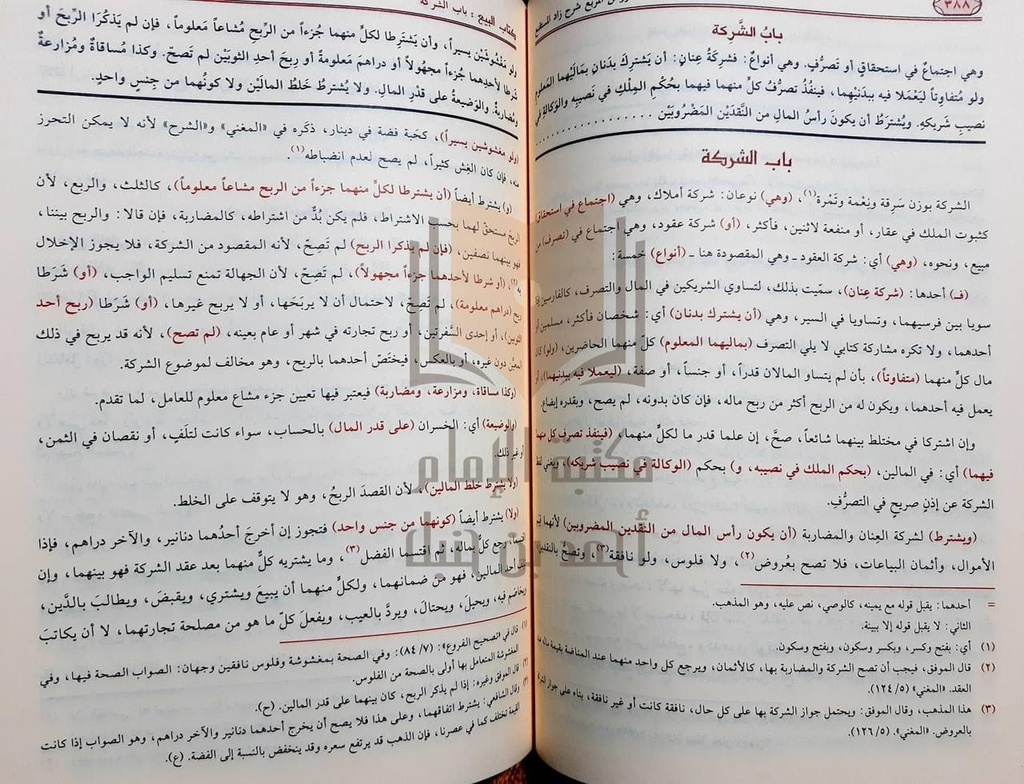 ٣٨٨
بابُ الشَّرِكة
وهي اجتماعٌ في استحقاقٍ أو تَصَرُّفٍ. وهي أنواعٌ: فشركةُ عِنانٍ: أن يَشترِكَ بدَنانِ بِمَالَيْهِما المَعلومِ
ولو مُتفاوِتاً ليَعْمَلا فيه بِبدَنَيْهِما، فينفُذُ تصرفُ كلٍّ منهما فيهما بحُكمِ المِلْكِ في نَصيبِه والوَكالةِ في
نصيبِ شريكِه. ويُشترَطُ أن يكونَ رأسُ المالِ من النَّقدَيْنِ المَضْروبَيْنِ
باب الشركة
الشركة بوزن سَرِقة ونِعْمة وتَمْرة(١)، (وهي) نوعان: شركة أملاك، وهي (اجتماع في استحقاق)
كثبوت الملك في عقار، أو منفعة لاثنين، فأكثر، (أو) شركة عقود، وهي اجتماع في (تصرف) من
مبيع، ونحوه، (وهي) أي: شركة العقود - وهي المقصودة هنا - (أنواع) خمسة:
(فـ) أحدها: (شركة عِنان)، سمّيت بذلك، لتساوي الشريكين في المال والتصرف، كالفارسين إذا
سويا بين فرسيهما، وتساويا في السير، وهي (أن يشترك بدنان) أي: شخصان فأكثر، مسلمين أو
أحدهما، ولا تكره مشاركة كتابي لا يلي التصرف (بماليهما المعلوم) كلٍّ منهما الحاضرين، (ولو) كان
مال كلٍّ منهما (متفاوتاً)، بأن لم يتساو المالان قدراً، أو جنساً، أو صفة، (ليعملا فيه ببدنيهما)، أو
يعمل فيه أحدهما، ويكون له من الربح أكثر من ربح ماله، فإن كان بدونه، لم يصح، وبقدره إبضاع.
وإن اشتركا في مختلط بينهما شائعاً، صحَّ، إن علما قدر ما لكلٍّ منهما، (فينفذ تصرف كل منهما
فيهما) أي: في المالين، (بحكم الملك في نصيبه، و) بحكم (الوكالة في نصيب شريكه)، ويغني لفظ
الشركة عن إذنٍ صريحٍ في التصرُّفِ.
(ويشترط) لشركة العِنان والمضاربة (أن يكون رأس المال من النقدين المضروبين) لأنهما قيم
الأموال، وأثمان البياعات، فلا تصح بعُروض(٢)، ولا فلوس، ولو نافقة(٣)، وتصحُّ بالنقدين
= أحدهما: يقبل قوله مع يمينه، كالوصي، نص عليه، وهو المذهب.
الثاني: لا يقبل قوله إلا ببينة.
(١) أي: بفتح وكسر، وبكسر وسكون، وبفتح وسكون.
(٢) قال الموفق، فيجب أن تصح الشركة والمضاربة بها، كالأثمان، ويرجع كل واحد منهما عند المناضة بقيمة ماله
العقد. «المغني» (١٢٤/٥).
(٣) هذا المذهب، وقال الموفق: ويحتمل جواز الشركة بها على كل حال، نافقة كانت أو غير نافقة، بناء على جواز
بالعروض. «المغني». (١٢٦/٥).
كتاب البيع: باب الشركة
ولو مَغْشوشَيْنِ يَسيراً، وأن يَشترِطا لكلٍّ منهما جُزءاً من الرِّبحِ مُشاعاً مَعلوماً، فإن لم يَذكُرَا الرِّبحَ أو
شرطا لأحدِهما جُزءاً مجهُولاً أو دراهمَ مَعلومةً أو رِبحَ أحدِ الثوبَيْنِ لم تَصحّ. وكذا مُساقاةٌ ومُزارعةٌ
ومُضاربةٌ. والوَضيعةُ على قَدْرِ المالِ. ولا يُشترَطُ خَلطُ المالَيْنِ ولا كونُهما من جِنسٍ واحدٍ.
(ولو مغشوشين يسيراً)، كحَبة فضة في دينار، ذكَره في «المغني» و«الشرح» لأنه لا يمكن التحرز
منه، فإن كان الغِش كثيراً، لم يصح لعدم انضباطه(١).
(و) يشترط أيضاً (أن يشترطا لكلٍّ منهما جزءاً من الربح مشاعاً معلوماً)، كالثلث، والربع، لأن
الربحَ مستحقٌ لهما بحسب الاشتراط، فلم يكن بُدٌّ من اشتراطه، كالمضاربة، فإن قالا: والربح بيننا،
فهو بينهما نصفين، (فإن لم يذكرا الربح) لم تَصِحّ، لأنه المقصود من الشركة، فلا يجوز الإخلال
به(٢)، (أو شرطا لأحدهما جزءاً مجهولاً)، لم تَصِحّ، لأن الجهالة تمنع تسليم الواجب، (أو) شَرَطا
(دراهم معلومة)، لم تَصحّ، لاحتمال أن لا يربَحَها، أو لا يربح غيرها، (أو) شَرَطا (ربح أحد
الثوبين)، أو إحدى السَّفرتين، أو ربح تجارته في شهر أو عام بعينه، (لم تصح)، لأنه قد يربح في ذلك
المعيَّن دون غيره، أو بالعكس، فيختَصّ أحدهما بالربح، وهو مخالف لموضوع الشركة.
(وكذا مساقاة، ومزارعة، ومضاربة) فيعتبر فيها تعيين جزء مشاع معلوم للعامل، لما تقدم.
(والوضيعة) أي: الخسران (على قدر المال) بالحساب، سواء كانت لتلَفٍ، أو نقصان في الثمن،
أو غير ذلك.
(ولا يشترط خلط المالين)، لأن القصدَ الربحُ، وهو لا يتوقف على الخلط.
(ولا) يشترط أيضاً (كونهما من جنس واحد) فتجوز إن أخرجَ أحدُهما دنانير، والآخر دراهم، فإذا
اقتسما رجع كلٌّ بماله، ثم اقتسما الفضل(٣)، وما يشتريه كلٌّ منهما بعد عقد الشركة فهو بينهما، وإن
تلف أحد المالين، فهو من ضمانهما، ولكلٍّ منهما أن يبيعَ ويشتري، ويقبضَ، ويطالبَ بالدَّين،
ويخاصم فيه، ويحيلَ، ويحتالَ، ويردَّ بالعيب، ويفعلَ كلّ ما هو من مصلحة تجارتهما، لا أن يكاتبَ
(١) قال في «تصحيح الفروع»: (٨٤/٧): وفي الصحة بمغشوشة وفلوس نافقتين وجهان: الصواب الصحة فيها، وفي
المغشوشة المتعامل بها أولى بالصحة من الفلوس.
(٢) قال الموفق وغيره: إذا لم يذكر الربح، كان بينهما على قدر المالين. (ح).
(٣) وقال الشافعي: يشترط اتفاقهما، وعلى هذا فلا يصح أن يخرج أحدهما دنانير والآخر دراهم، وهو الصواب إذا كانت
القيمة تختلف كما في عصرنا، فإن الذهب قد يرتفع سعره وقد ينخفض بالنسبة إلى الفضة. (ع).
مكتبة الإمام
أحمد بن حنبل